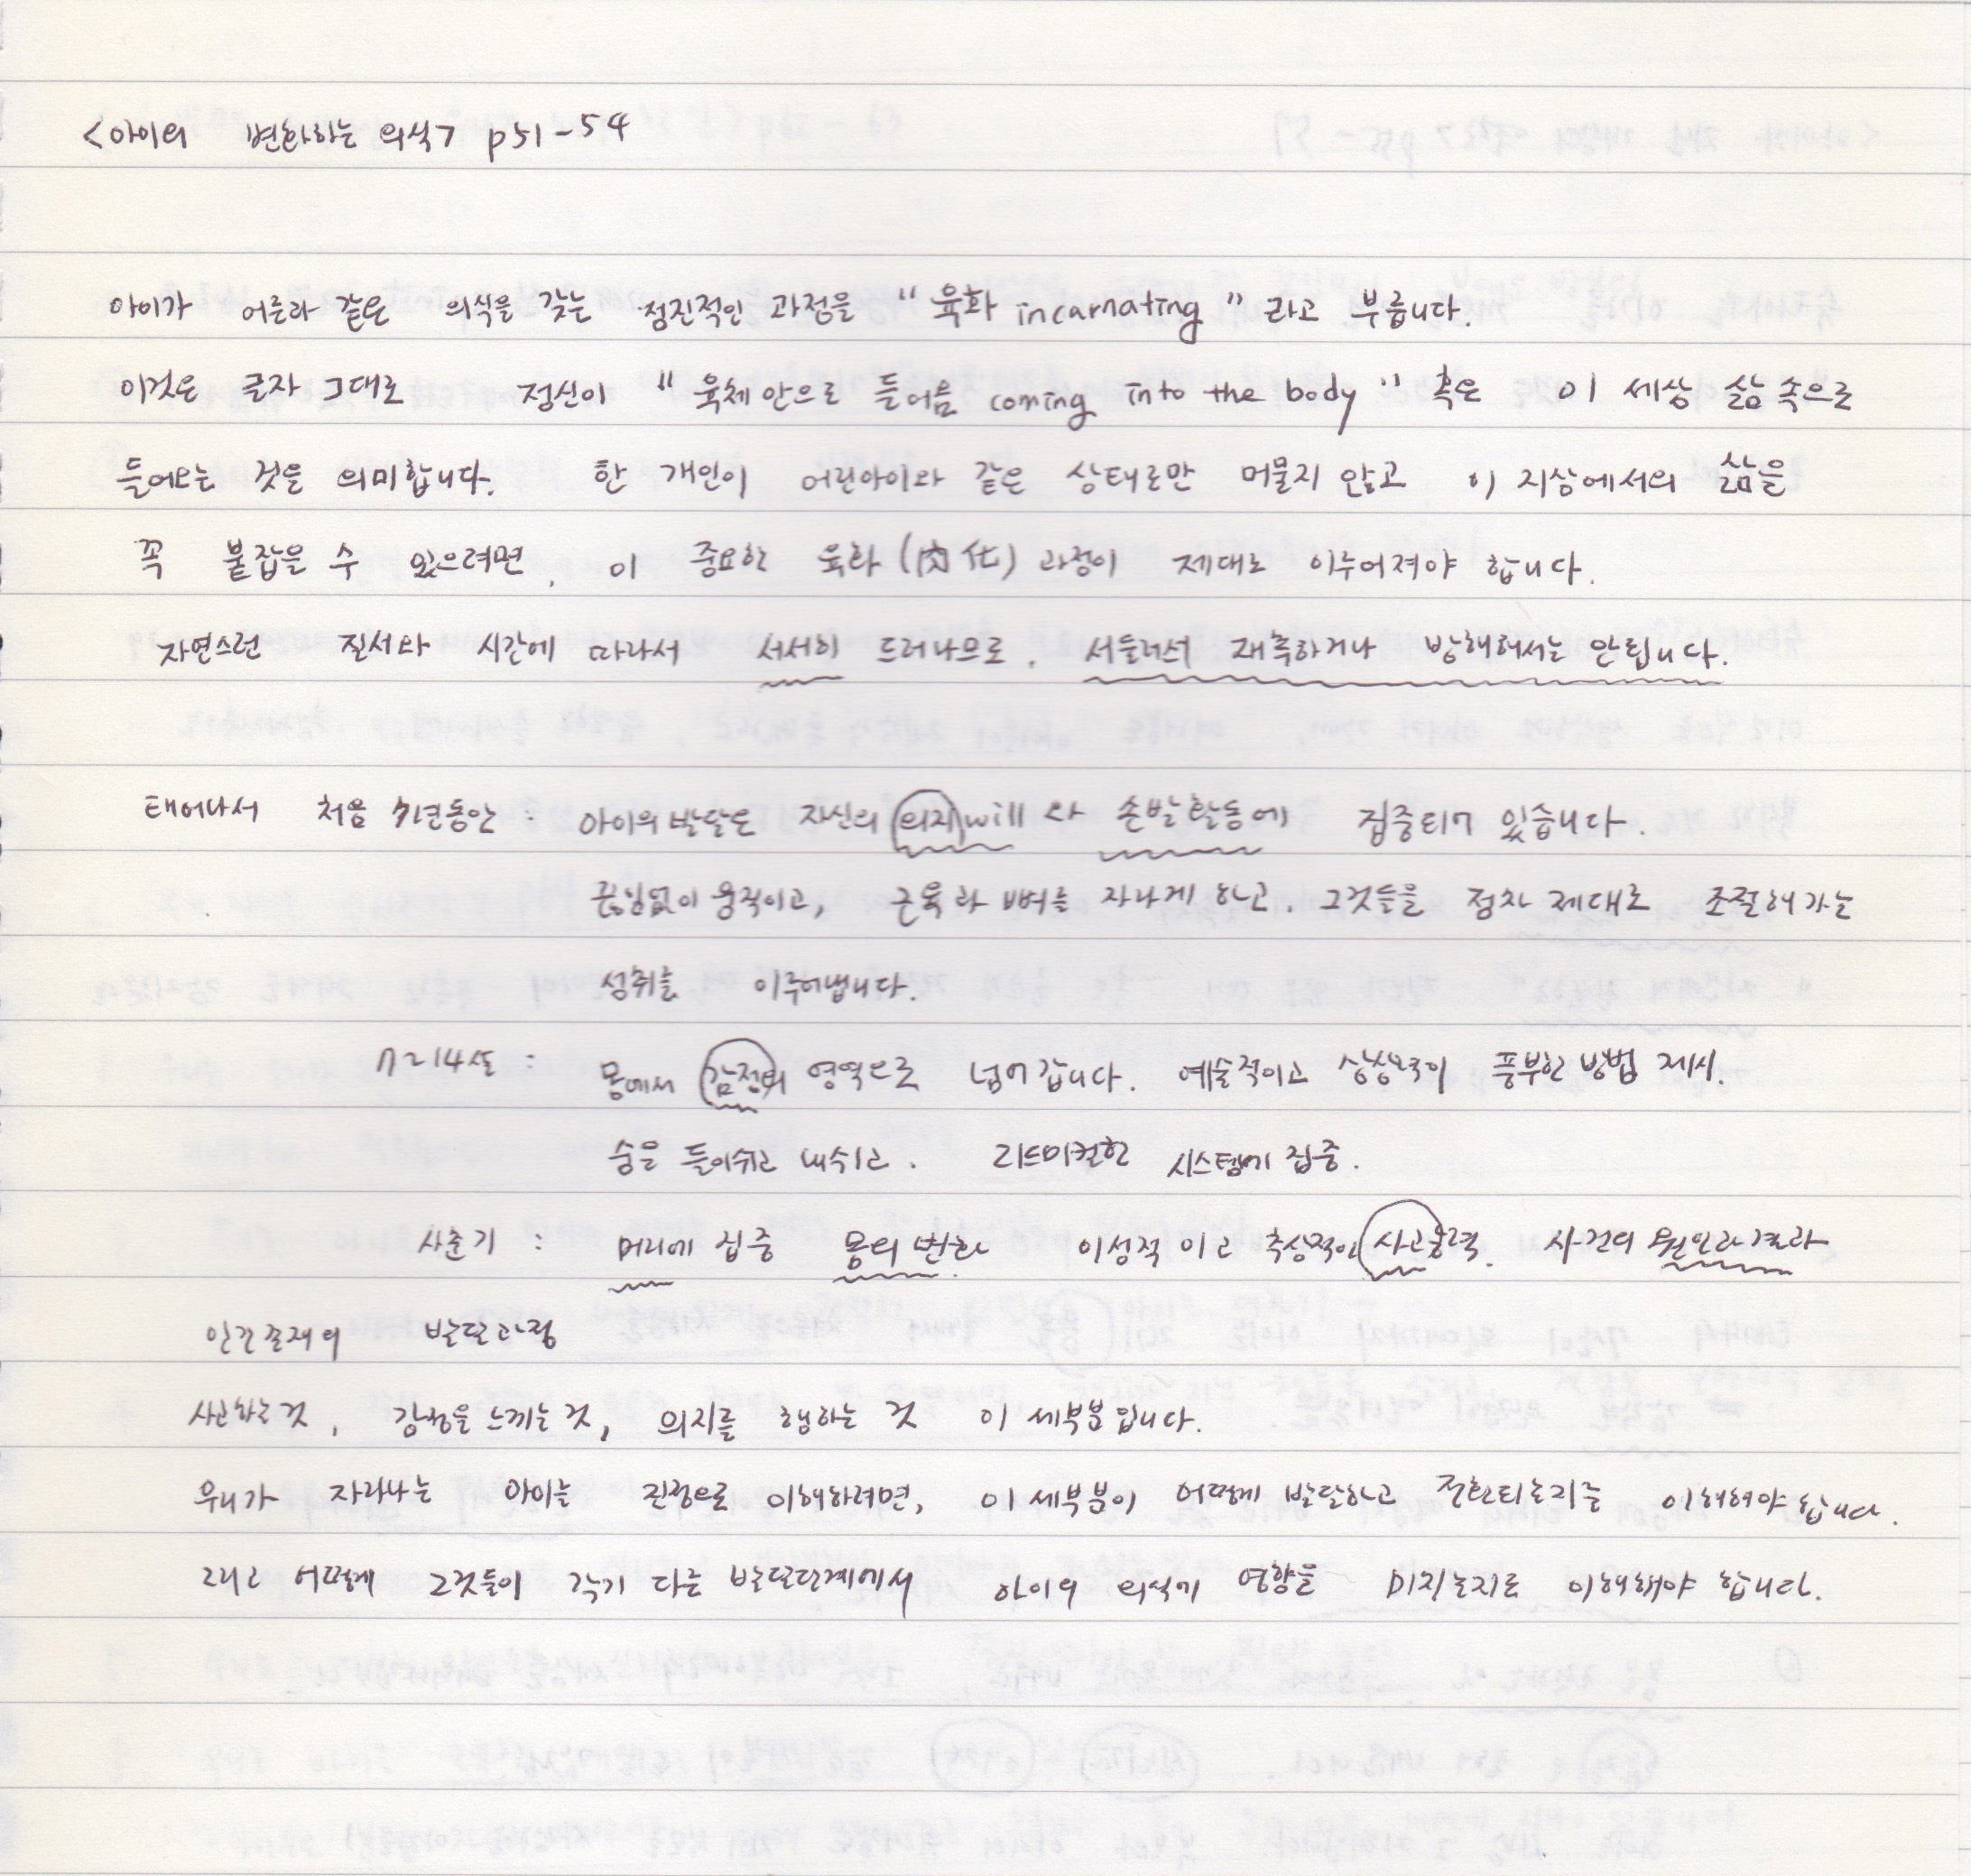 <아이의 변화하는 의식> p51-54
아이가 어른과 같은 의식을 갖는 점진적인 과정을 "육화 incarnating" 라고 부릅니다.
이것은 글자 그대로 정신이 "육체 안으로 들어옴 coming into the body" 혹은 이 세상 삶 속으로
들어오는 것을 의미합니다. 한 개인이 어린아이와 같은 상태로만 머물지 않고 이 지상에서의 삶을
꼭 붙잡을 수 있으려면, 이 중요한 육화(肉化) 과정이 제대로 이루어져야 합니다.
자연스런 질서와 시간에 따라서 서서히 드러나므로. 서둘러서 재촉하거나 방해해서는 안됩니다.
태어나서 처음 7년동안 : 아이의 발달은 자신의 의지will 와 손발활동에 집중되어 있습니다.
끊임없이 움직이고, 근육과 뼈를 자라게 하고. 그것들을 점차 제대로 조절해가는
성취를 이루어냅니다.
7~14살 : 몸에서 감정의 영역으로 넘어갑니다. 예술적이고 상상력이 풍부한 방법 제시.
숨을 들이쉬고 내쉬고. 리드미컬한 시스템에 집중.
사춘기 : 머리에 집중 몸의 변화 이성적이고 추상적인 사고능력. 사건의 원인과 결과
인간존재의 발달과정
사고하는 것, 감정을 느끼는 것, 의지를 행하는 것 이 세부분입니다.
우리가 자라나는 아이를 진정으로 이해하려면, 이 세부분이 어떻게 발달하고 전환되는지를 이해해야 합니다.
그리고 어떻게 그것들이 각기 다른 발달단계에서 아이의 의식에 영향을 미치는지도 이해해야 합니다.